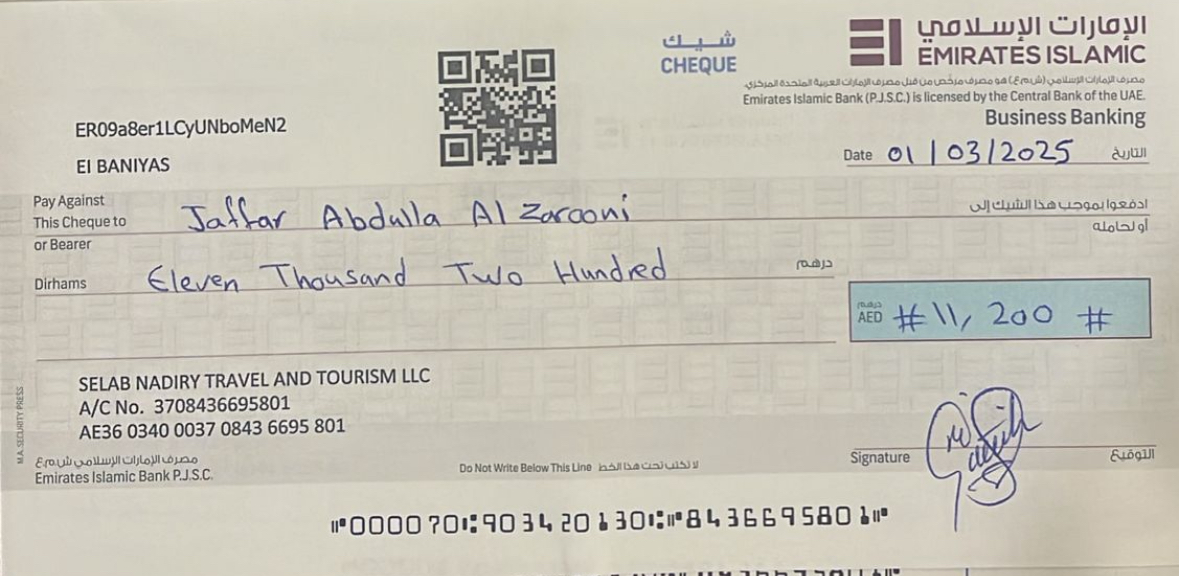 شيك
CHEQUE
الإمارات الإسلامي
EMIRATES ISLAMIC
مصرف الإمارات الإسلامي (ش.م.ع) هو مصرف مرخّص من قبل مصرف الإمارات العربية المتحدة المركزي.
Emirates Islamic Bank (P.J.S.C.) is licensed by the Central Bank of the UAE.
Business Banking
ER09a8er1LCyUNboMeN2
EI BANIYAS
Date 01/03/2025 التاريخ
Pay Against
This Cheque to Jaffar Abdulla Al Zarooni ادفعوا بموجب هذا الشيك إلى
or Bearer أو لحامله
Dirhams Eleven Thousand Two Hundred درهم
درهم
AED # 11, 200 #
SELAB NADIRY TRAVEL AND TOURISM LLC
A/C No. 3708436695801
AE36 0340 0037 0843 6695 801
M.A. SECURITY PRESS
مصرف الإمارات الإسلامي ش.م.ع
Emirates Islamic Bank P.J.S.C.
Do Not Write Below This Line لا تكتب تحت هذا الخط
Signature التوقيع
⑈000070⑆903420130⑆⑈8436695801⑈